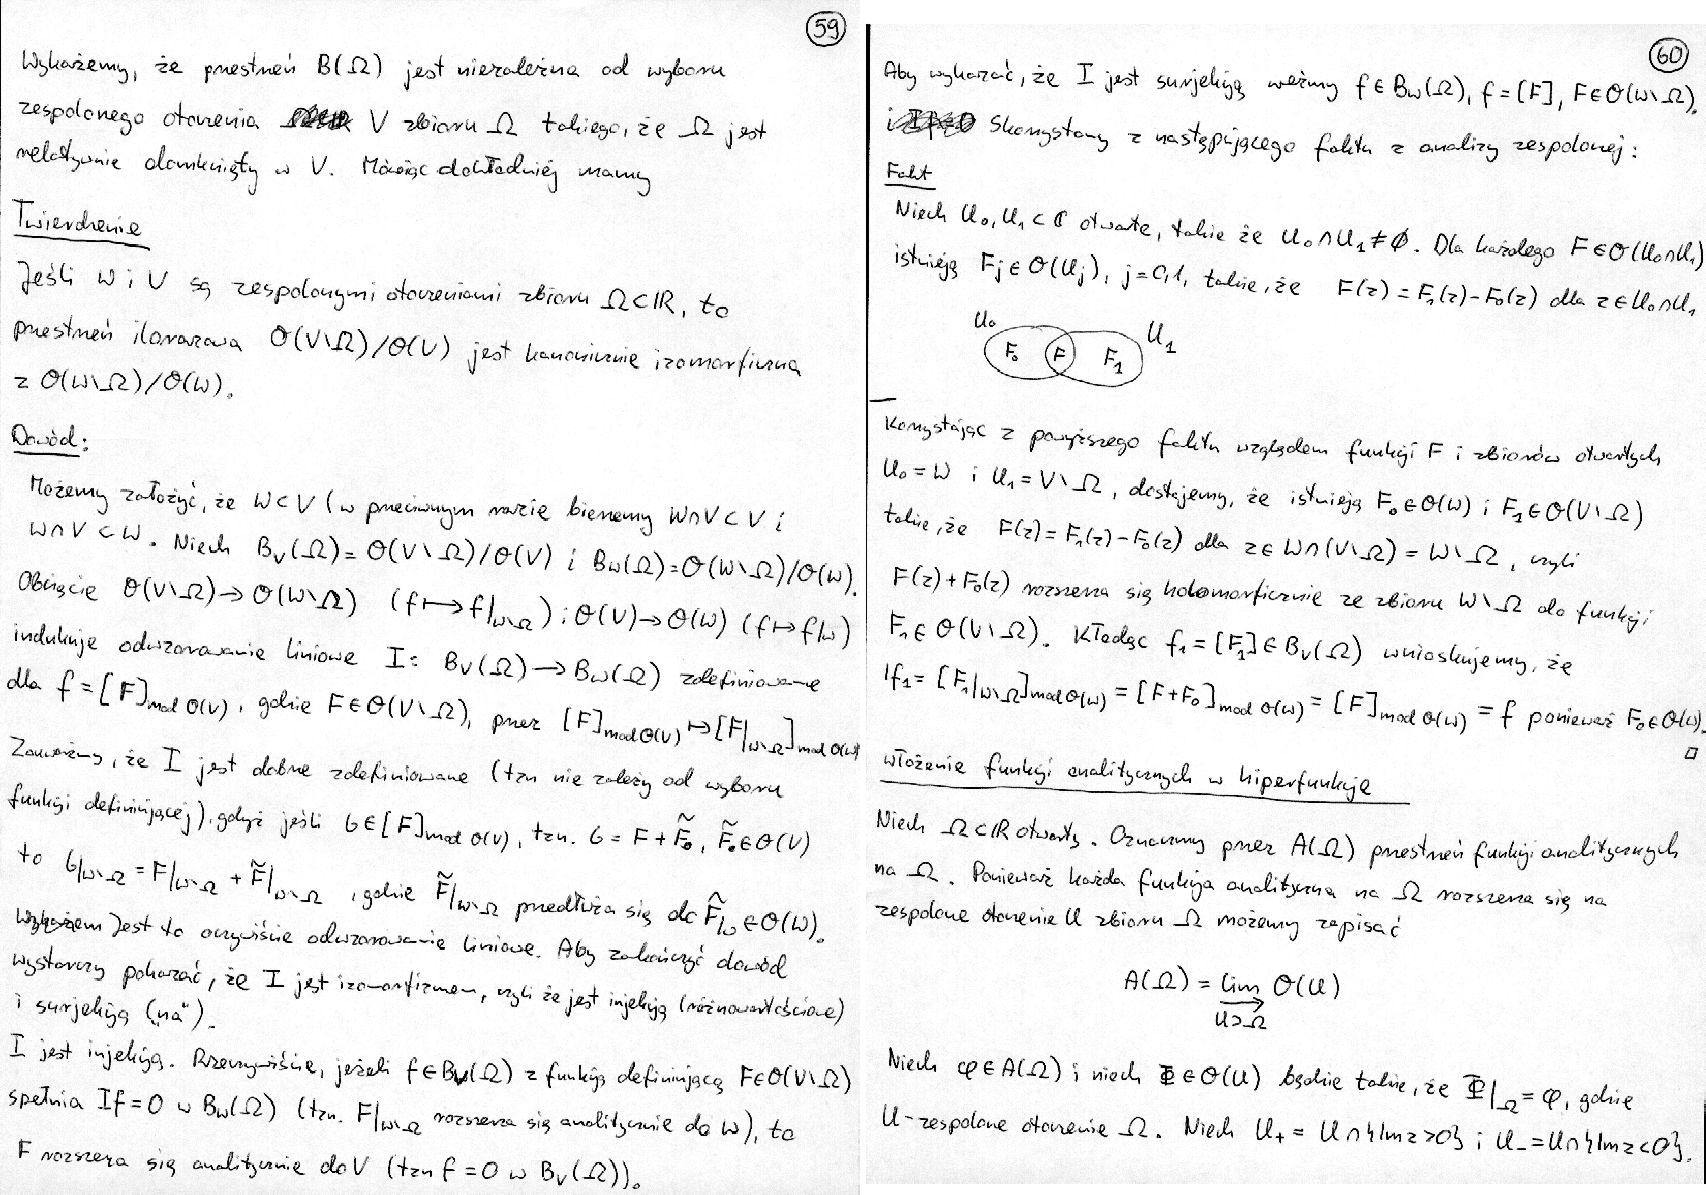 59
Wykażemy, że przestrzeń B(Ω) jest niezależna od wyboru
zespolonego otoczenia V zbioru Ω takiego, że Ω jest
relatywnie domknięty w V. Mówiąc dokładniej mamy
Twierdzenie
Jeśli W i V są zespolonymi otoczeniami zbioru Ω⊂ℝ, to
przestrzeń ilorazowa O(V\Ω)/O(V) jest kanonicznie izomorficzna
z O(W\Ω)/O(W).
Dowód:
Możemy założyć, że W⊂V (w przeciwnym razie bierzemy W∩V⊂V i
W∩V⊂W. Niech B_V(Ω)=O(V\Ω)/O(V) i B_W(Ω)=O(W\Ω)/O(W).
Obcięcie O(V\Ω)→O(W\Ω) (f↦f|_{W\Ω}) i O(V)→O(W) (f↦f|_W)
indukuje odwzorowanie liniowe I: B_V(Ω)→B_W(Ω) zdefiniowane
dla f=[F]_{mod O(V)}, gdzie F∈O(V\Ω), przez [F]_{mod O(V)}↦[F|_{W\Ω}]_{mod O(W)}
Zauważmy, że I jest dobrze zdefiniowane (tzn nie zależy od wyboru
funkcji definiującej), gdyż jeśli G∈[F]_{mod O(V)}, tzn. G=F+F̃₀, F̃₀∈O(V)
to G|_{W\Ω}=F|_{W\Ω}+F̃|_{W\Ω}, gdzie F̃|_{W\Ω} przedłuża się do F̃|_W∈O(W).
Jest to oczywiście odwzorowanie liniowe. Aby zakończyć dowód
wystarczy pokazać, że I jest izomorfizmem, czyli że jest injekcją (różnowartościowe)
i surjekcją („na”).
I jest injekcją. Rzeczywiście, jeżeli f∈B_V(Ω) z funkcją definiującą F∈O(V\Ω)
spełnia If=0 w B_W(Ω) (tzn. F|_{W\Ω} rozszerza się analitycznie do W), to
F rozszerza się analitycznie do V (tzn f=0 w B_V(Ω)).
60
Aby wykazać, że I jest surjekcją weźmy f∈B_W(Ω), f=[F], F∈O(W\Ω).
Skorzystamy z następującego faktu z analizy zespolonej:
Fakt
Niech U₀,U₁⊂ℂ otwarte, takie że U₀∩U₁≠∅. Dla każdego F∈O(U₀∩U₁)
istnieją F_j∈O(U_j), j=0,1, takie, że F(z)=F₁(z)-F₀(z) dla z∈U₀∩U₁
U₀ U₁
F₀ F F₁
Korzystając z powyższego faktu względem funkcji F i zbiorów otwartych
U₀=W i U₁=V\Ω, dostajemy, że istnieją F₀∈O(W) i F₁∈O(V\Ω)
takie, że F(z)=F₁(z)-F₀(z) dla z∈W∩(V\Ω)=W\Ω, czyli
F(z)+F₀(z) rozszerza się holomorficznie ze zbioru W\Ω do funkcji
F₁∈O(V\Ω). Kładąc f₁=[F₁]∈B_V(Ω) wnioskujemy, że
If₁=[F₁|_{W\Ω}]_{mod O(W)}=[F+F₀]_{mod O(W)}=[F]_{mod O(W)}=f ponieważ F₀∈O(W).
□
Włożenie funkcji analitycznych w hiperfunkcje
Niech Ω⊂ℝ otwarty. Oznaczmy przez A(Ω) przestrzeń funkcji analitycznych
na Ω. Ponieważ każda funkcja analityczna na Ω rozszerza się na
zespolone otoczenie U zbioru Ω możemy zapisać
A(Ω)=lim O(U)
→
U⊃Ω
Niech φ∈A(Ω) i niech Φ∈O(U) będzie takie, że Φ|_Ω=φ, gdzie
U-zespolone otoczenie Ω. Niech U₊=U∩{Imz>0} i U₋=U∩{Imz<0}.